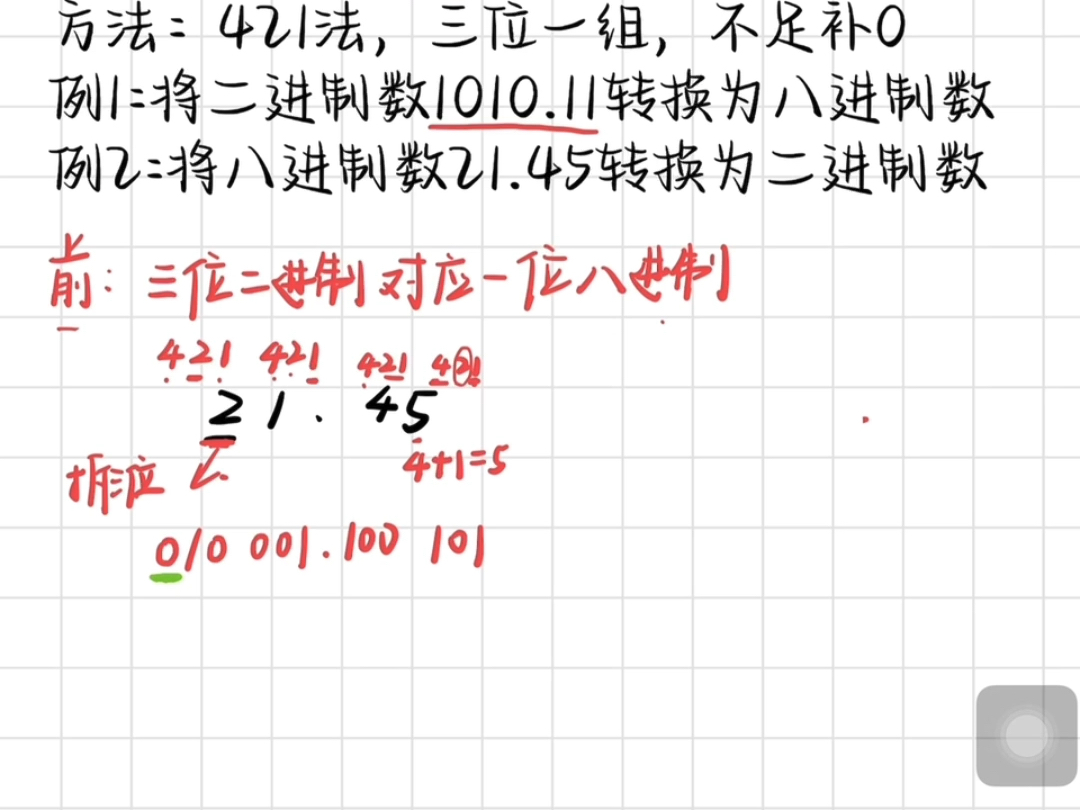 方法：421法，三位一组，不足补0
例1：将二进制数1010.11转换为八进制数
例2：将八进制数21.45转换为二进制数
前：三位二进制对应一位八进制
421 421 421 421
21.45
拆三位 4+1=5
010 001.100 101